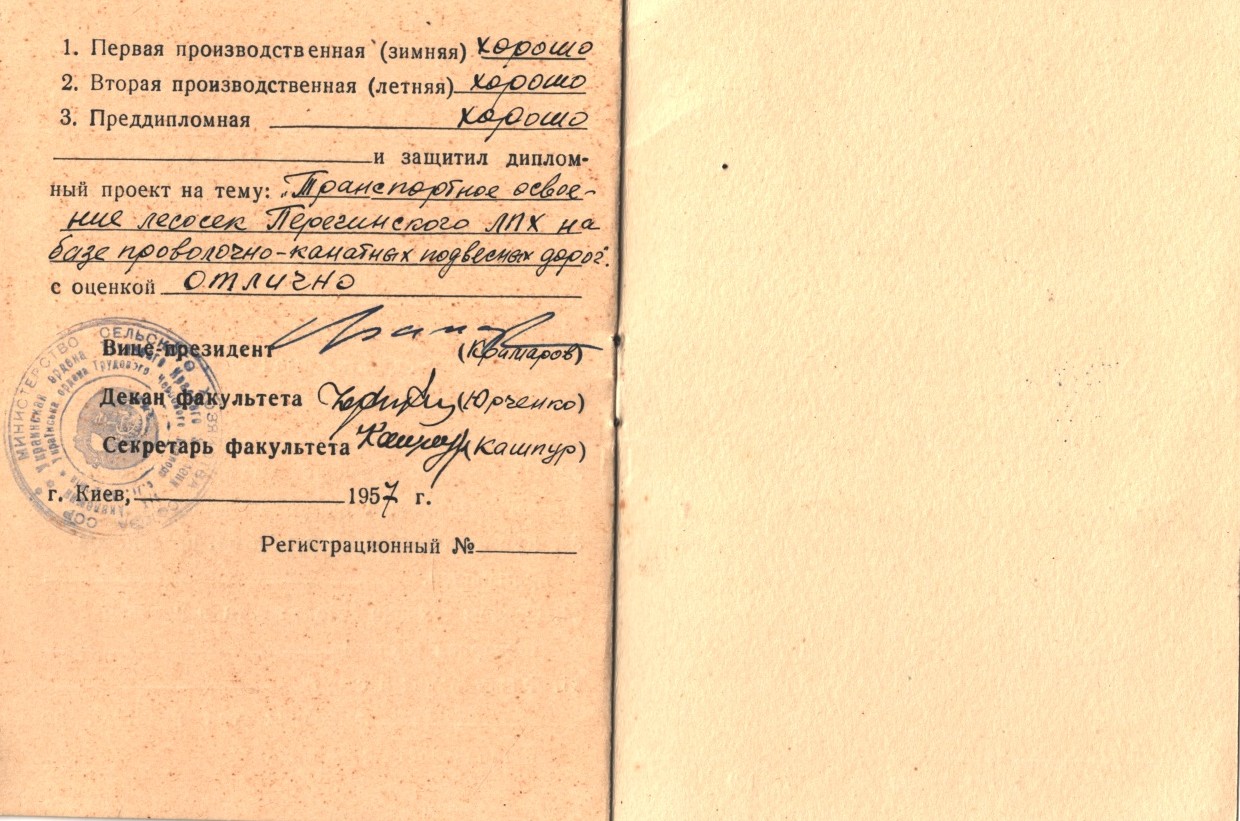 1. Первая производственная (зимняя) хорошо
2. Вторая производственная (летняя) хорошо
3. Преддипломная хорошо
и защитил диплом-
ный проект на тему: „Транспортное освое-
ние лесосек Перегинского ЛПХ на
базе проволочно-канатных подвесных дорог".
с оценкой отлично
Вице-президент
Декан факультета (Юрченко)
Секретарь факультета (Кашпур)
г. Киев, 1957 г.
Регистрационный №
МИНИСТЕРСТВО СЕЛЬСКОГО